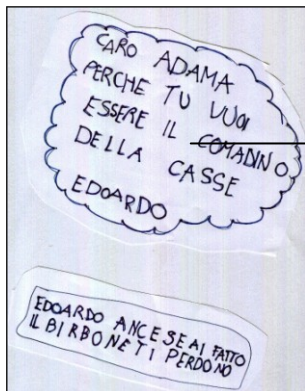 CARO ADAMA
PERCHE TU VUOI
ESSERE IL COMADINO
DELLA CASSE
EDOARDO
EDOARDO ANCESEAI FATTO
IL BIRBONETI PERDONO